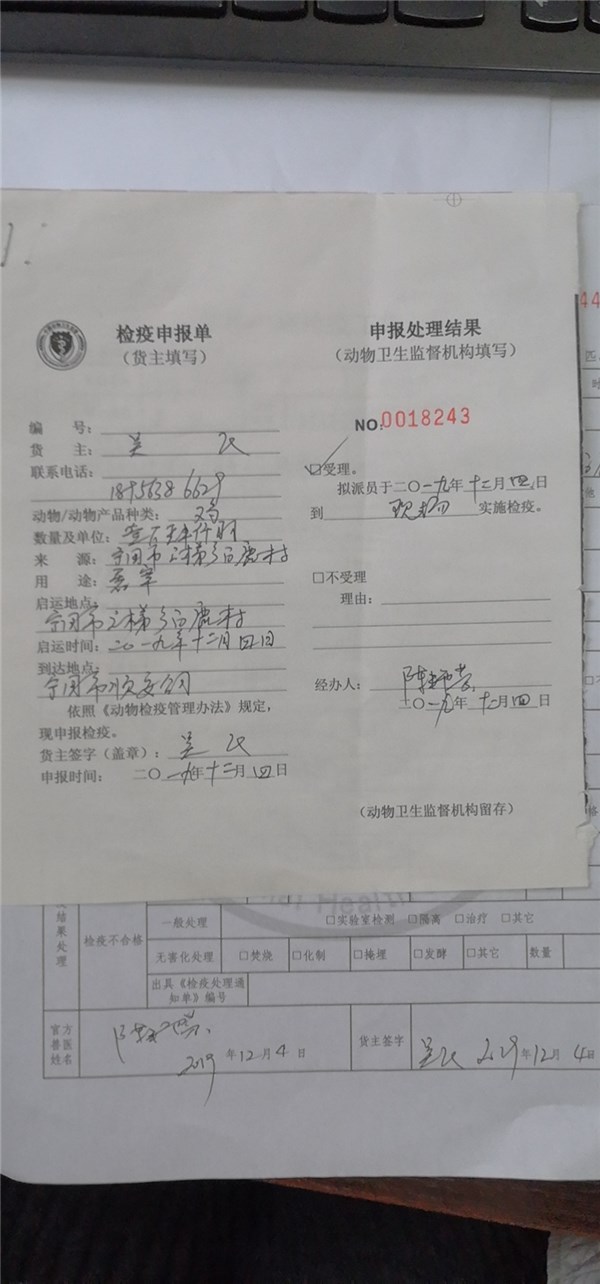 检疫申报单
（货主填写）
编 号：
货 主：吴 氏
联系电话：
动物/动物产品种类：鸡
数量及单位：
来 源：宁国市三梯乡白鹿村
用 途：屠宰
启运地点：
宁国市三梯乡白鹿村
启运时间：二〇一九年十二月四日
到达地点：
宁国市顺安公司
依照《动物检疫管理办法》规定，
现申报检疫。
货主签字（盖章）：吴 氏
申报时间：二〇一九年十二月四日
申报处理结果
（动物卫生监督机构填写）
NO:0018243
☑受理。
拟派员于二〇一九年十二月四日
到 现场 实施检疫。
□不受理
理由：
经办人：
二〇一九年十二月四日
（动物卫生监督机构留存）
44
匹
时
他
格
结果处理
检疫不合格
一般处理 □实验室检测 □隔离 □治疗 □其它
无害化处理 □焚烧 □化制 □掩埋 □发酵 □其它 数量
出具《检疫处理通知单》编号
官方兽医姓名
2019年12月4日
货主签字
吴氏 2019年12月4日
Health